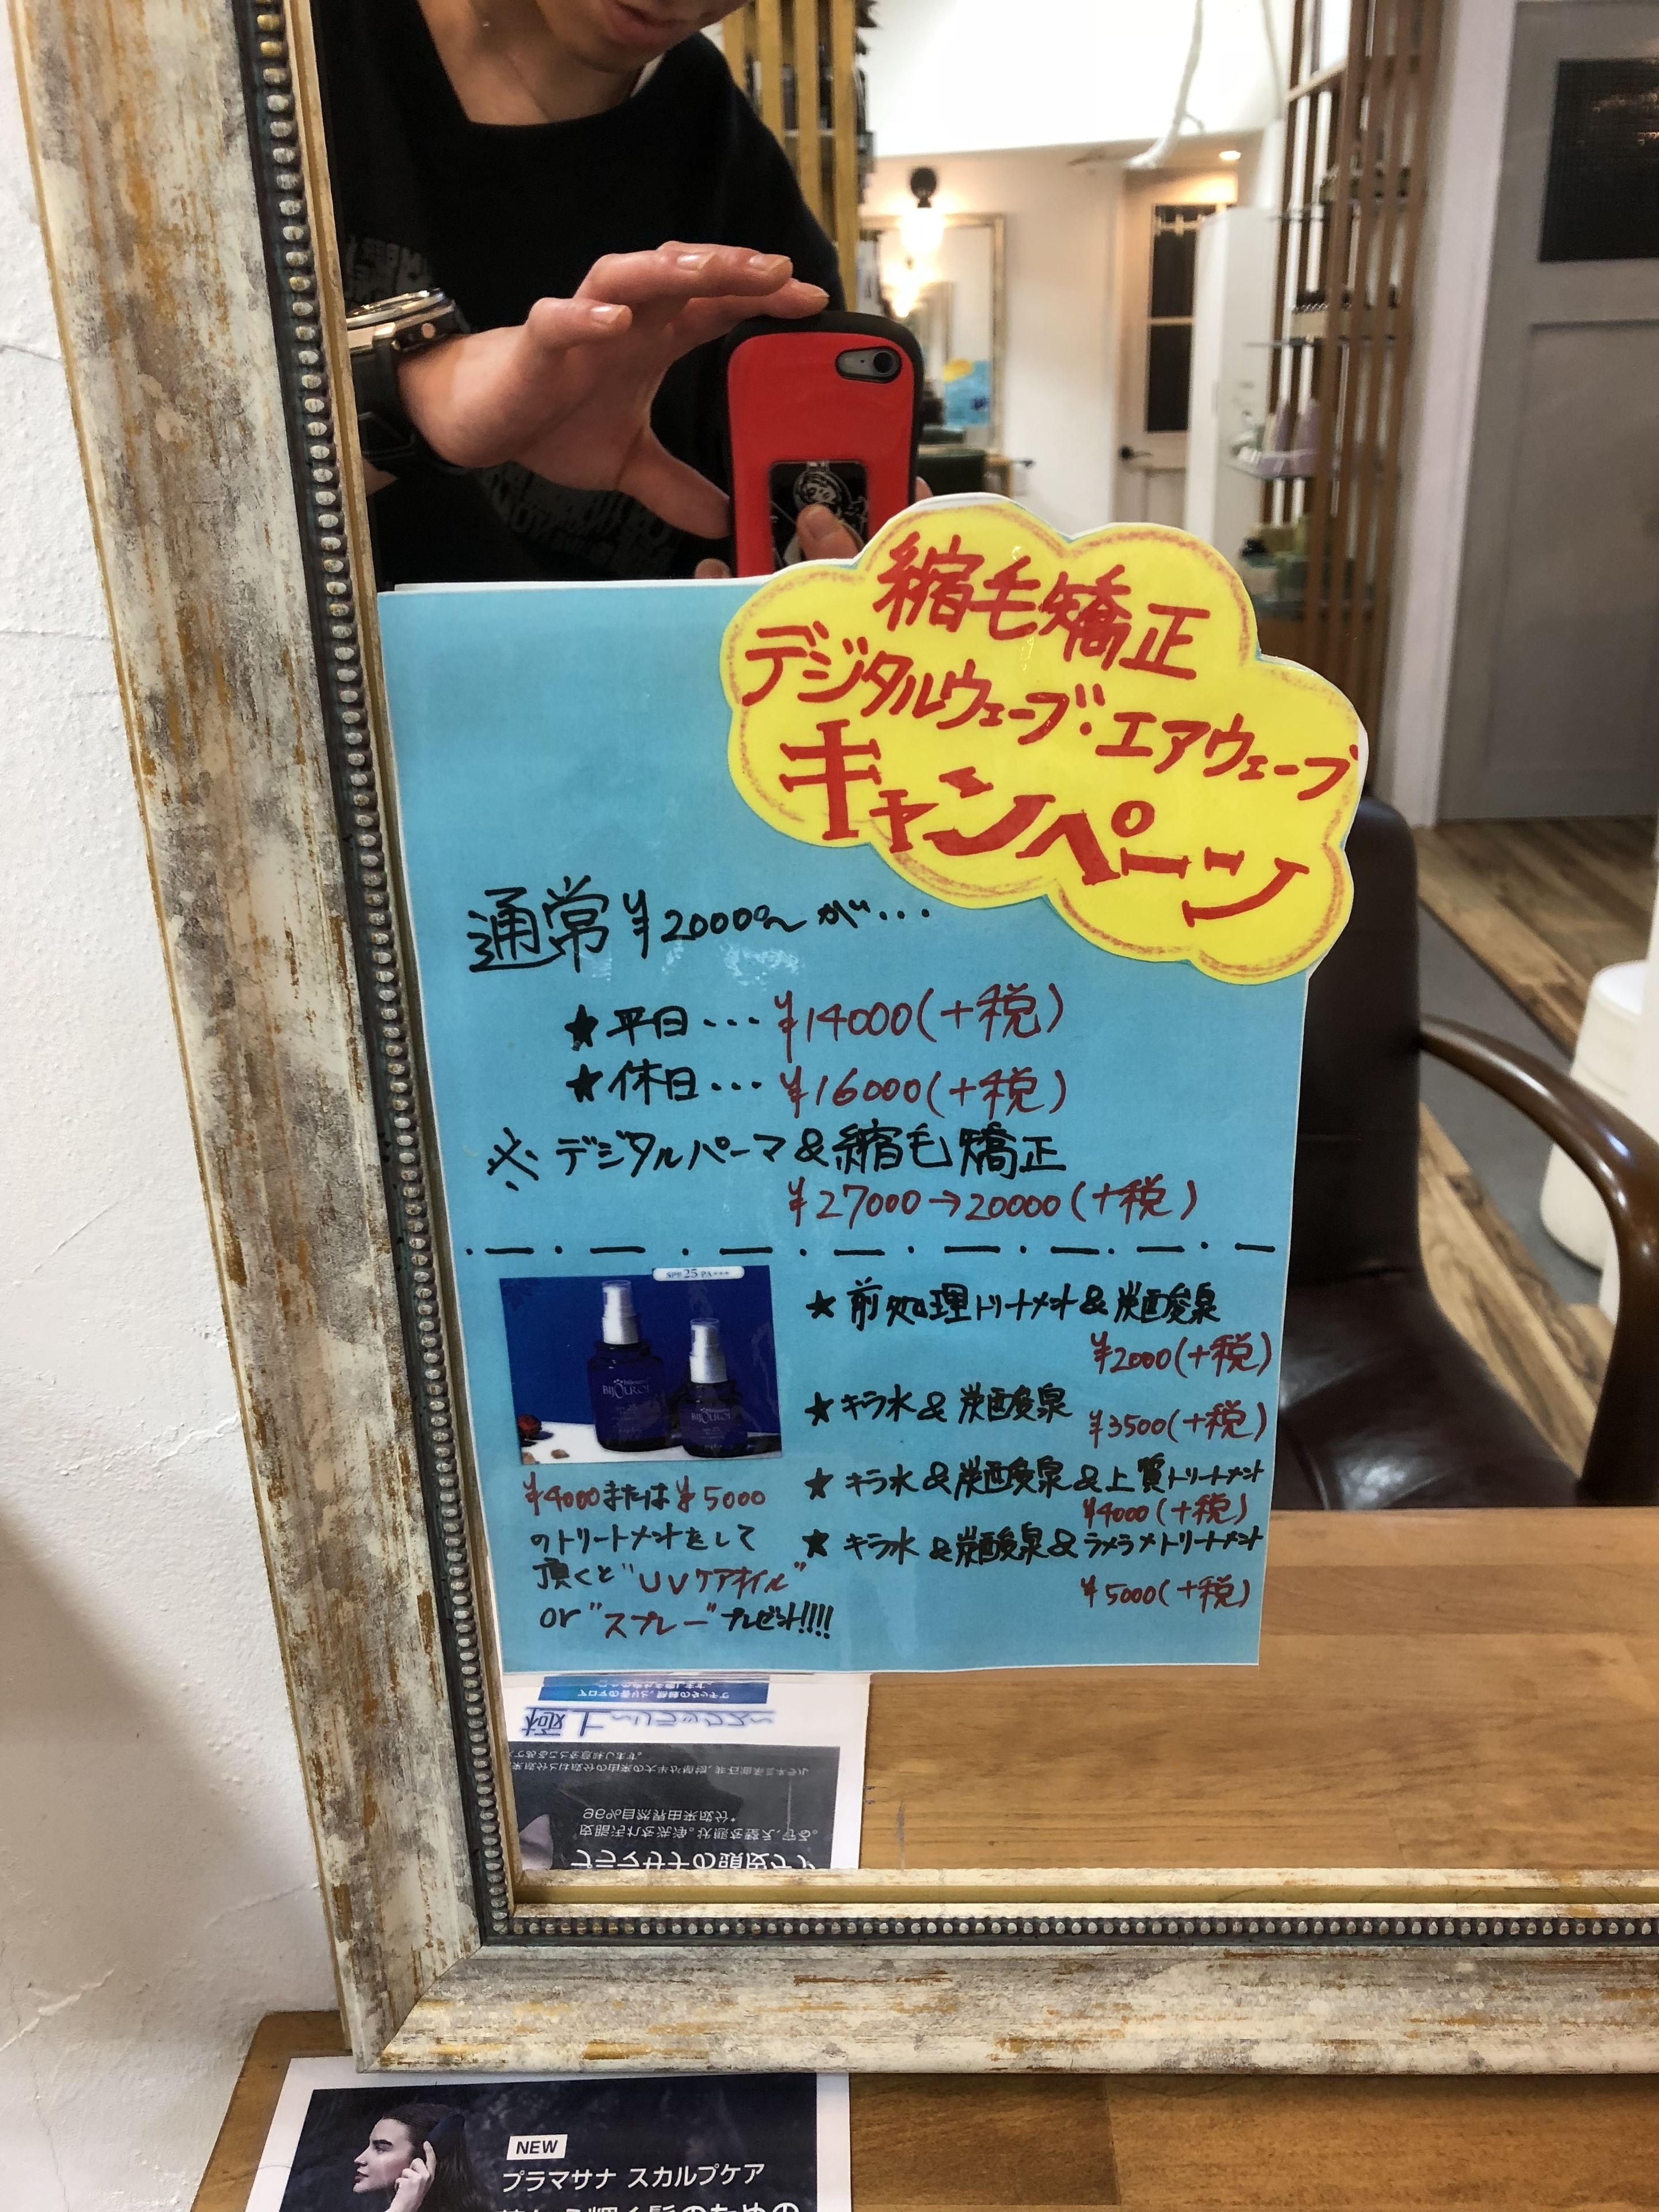 縮毛矯正
デジタルウェーブ・エアウェーブ
キャンペーン
通常¥20000〜が・・・
★平日・・・¥14000(+税)
★休日・・・¥16000(+税)
※デジタルパーマ&縮毛矯正
¥27000→20000(+税)
SPF25 PA+++
BIJOUROI
BIJOUROI
¥4000または¥5000
のトリートメントをして
頂くと"UVケアオイル"
or"スプレー"プレゼント!!!!
★前処理トリートメント&炭酸泉
¥2000(+税)
★キラ水&炭酸泉
¥3500(+税)
★キラ水&炭酸泉&上質トリートメント
¥4000(+税)
★キラ水&炭酸泉&ラメラメトリートメント
¥5000(+税)
99%自然界由来成分*
プラマサナの頭皮ケア
NEW
プラマサナ スカルプケア